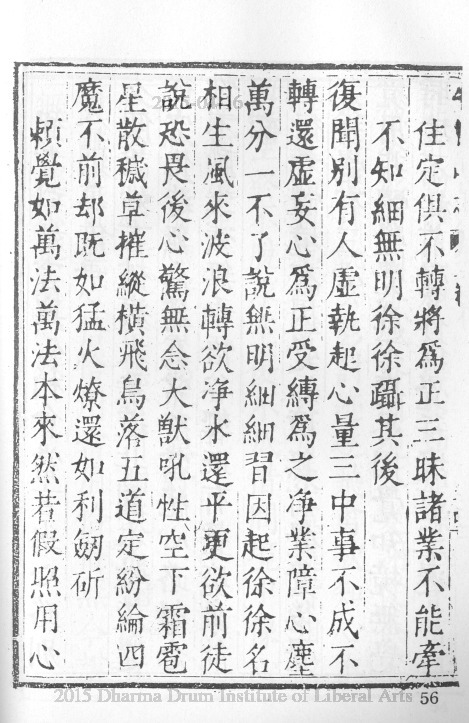 住定俱不轉將為正三昧諸業不能牽
不知細無明徐徐躡其後
復聞別有人虛執起心量三中事不成不
轉還虛妄心為正受縛為之净業障心塵
萬分一不了說無明細細習因起徐徐名
相生風來波浪轉欲净水還平更欲前徒
說恐畏後心驚無念大獸吼性空下霜雹
星散穢草摧縱橫飛鳥落五道定紛綸四
魔不前却既如猛火燎還如利劒斫
賴覺知萬法萬法本來然若假照用心
2015 Dharma Drum Institute of Liberal Arts 56